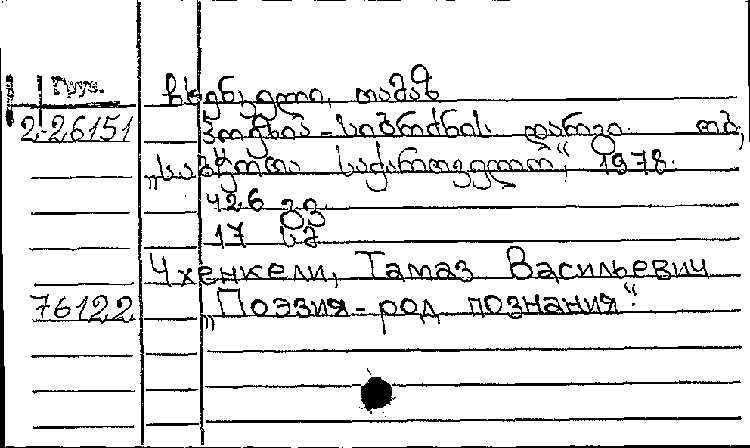 Груз.
ჩხენკელი, თამაზ
2-26151 პოეზია - სიბრძნის დარგი. თბ,
„საბჭოთა საქართველო“, 1978.
426 გვ.
17 სმ
Чхенкели, Тамаз Васильевич
76122 „Поэзия - род познания“.